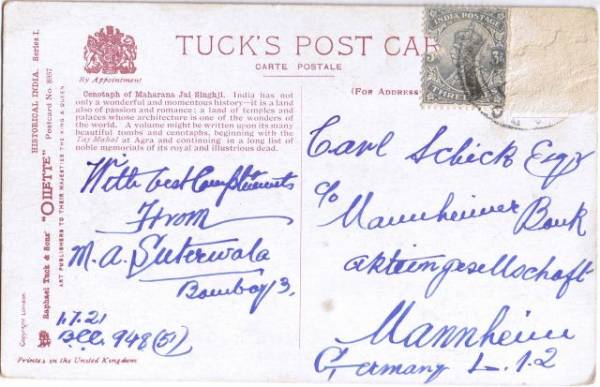 TUCK'S POST CAR
CARTE POSTALE
By Appointment
(FOR ADDRESS
INDIA POSTAGE
Cenotaph of Maharana Jai Singhji. India has not
only a wonderful and momentous history—it is a land
also of passion and romance; a land of temples and
palaces whose architecture is one of the wonders of
the world. A volume might be written upon its many
beautiful tombs and cenotaphs, beginning with the
Taj Mahal at Agra and continuing in a long list of
noble memorials of its royal and illustrious dead.
With best Compliments
From
M. A. Suterwala
Bombay 3.
1.7.21
B.C.C. 948 (51)
Carl Schick Esqr
c/o
Mannheimer Bank
aktiengesellschaft
Mannheim
Germany L. 1. 2
HISTORICAL INDIA. Series I.
Raphael Tuck & Sons' "OILETTE" Postcard No. 8957
ART PUBLISHERS TO THEIR MAJESTIES THE KING & QUEEN
Copyright London
Printed in the United Kingdom